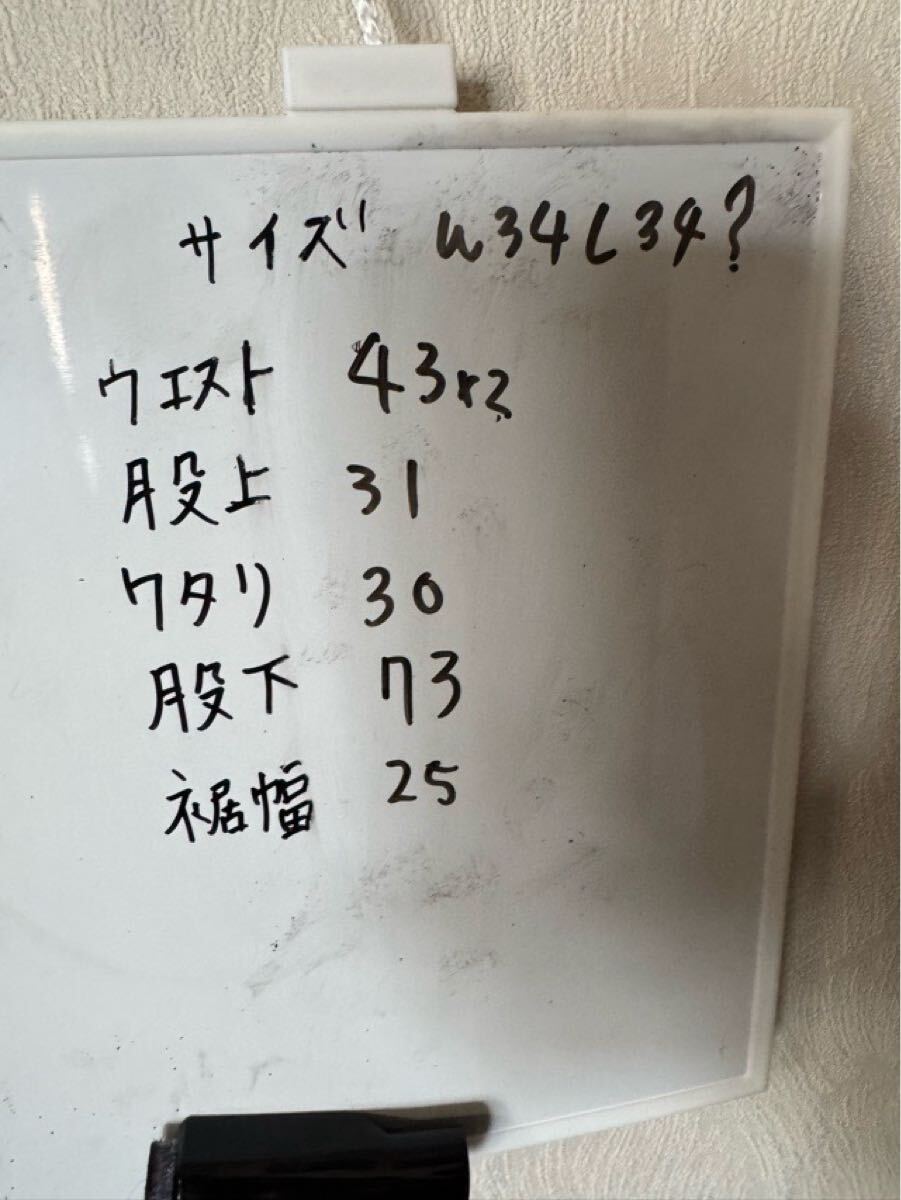 サイズ W34L34?
ウエスト 43×2
股上 31
ワタリ 30
股下 73
裾幅 25